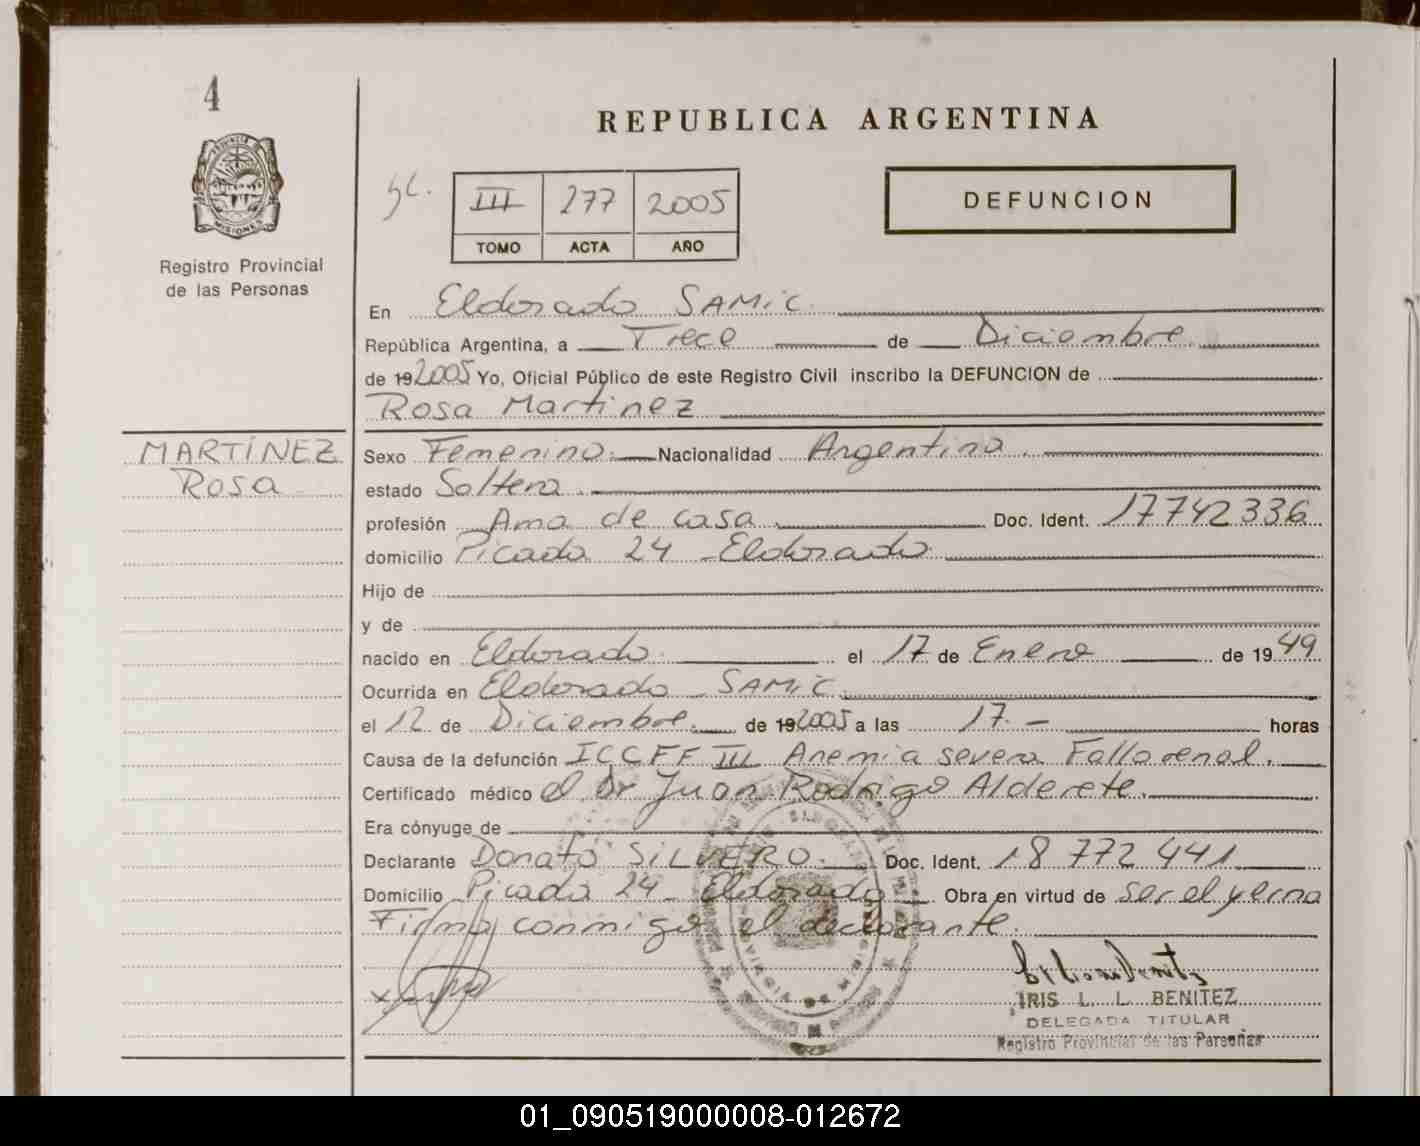 4
REPUBLICA ARGENTINA
III 277 2005
TOMO ACTA AÑO
DEFUNCION
PROVINCIA DE
MISIONES
Registro Provincial
de las Personas
En Eldorado SAMIC.
República Argentina, a Trece de Diciembre.
de 192005 Yo, Oficial Público de este Registro Civil inscribo la DEFUNCION de
Rosa Martinez
MARTÍNEZ
Rosa
Sexo Femenino. Nacionalidad Argentina.
estado Soltera.
profesión Ama de casa. Doc. Ident. 17742336
domicilio Picada 24 - Eldorado.
Hijo de
y de
nacido en Eldorado. el 17 de Enero de 1949
Ocurrida en Eldorado - SAMIC.
el 12 de Diciembre. de 192005 a las 17.- horas
Causa de la defunción ICCFF III Anemia severa Falla renal.
Certificado médico el Dr Juan Rodrigo Alderete.
Era cónyuge de
Declarante Donato SILVERO. Doc. Ident. 18 772 441
Domicilio Picada 24 - Eldorado. Obra en virtud de ser el yerno
Firma conmigo el declarante.
IRIS L. L. BENITEZ
DELEGADA TITULAR
Registro Provincial de las Personas
PROVINCIA DE MISIONES
01_090519000008-012672